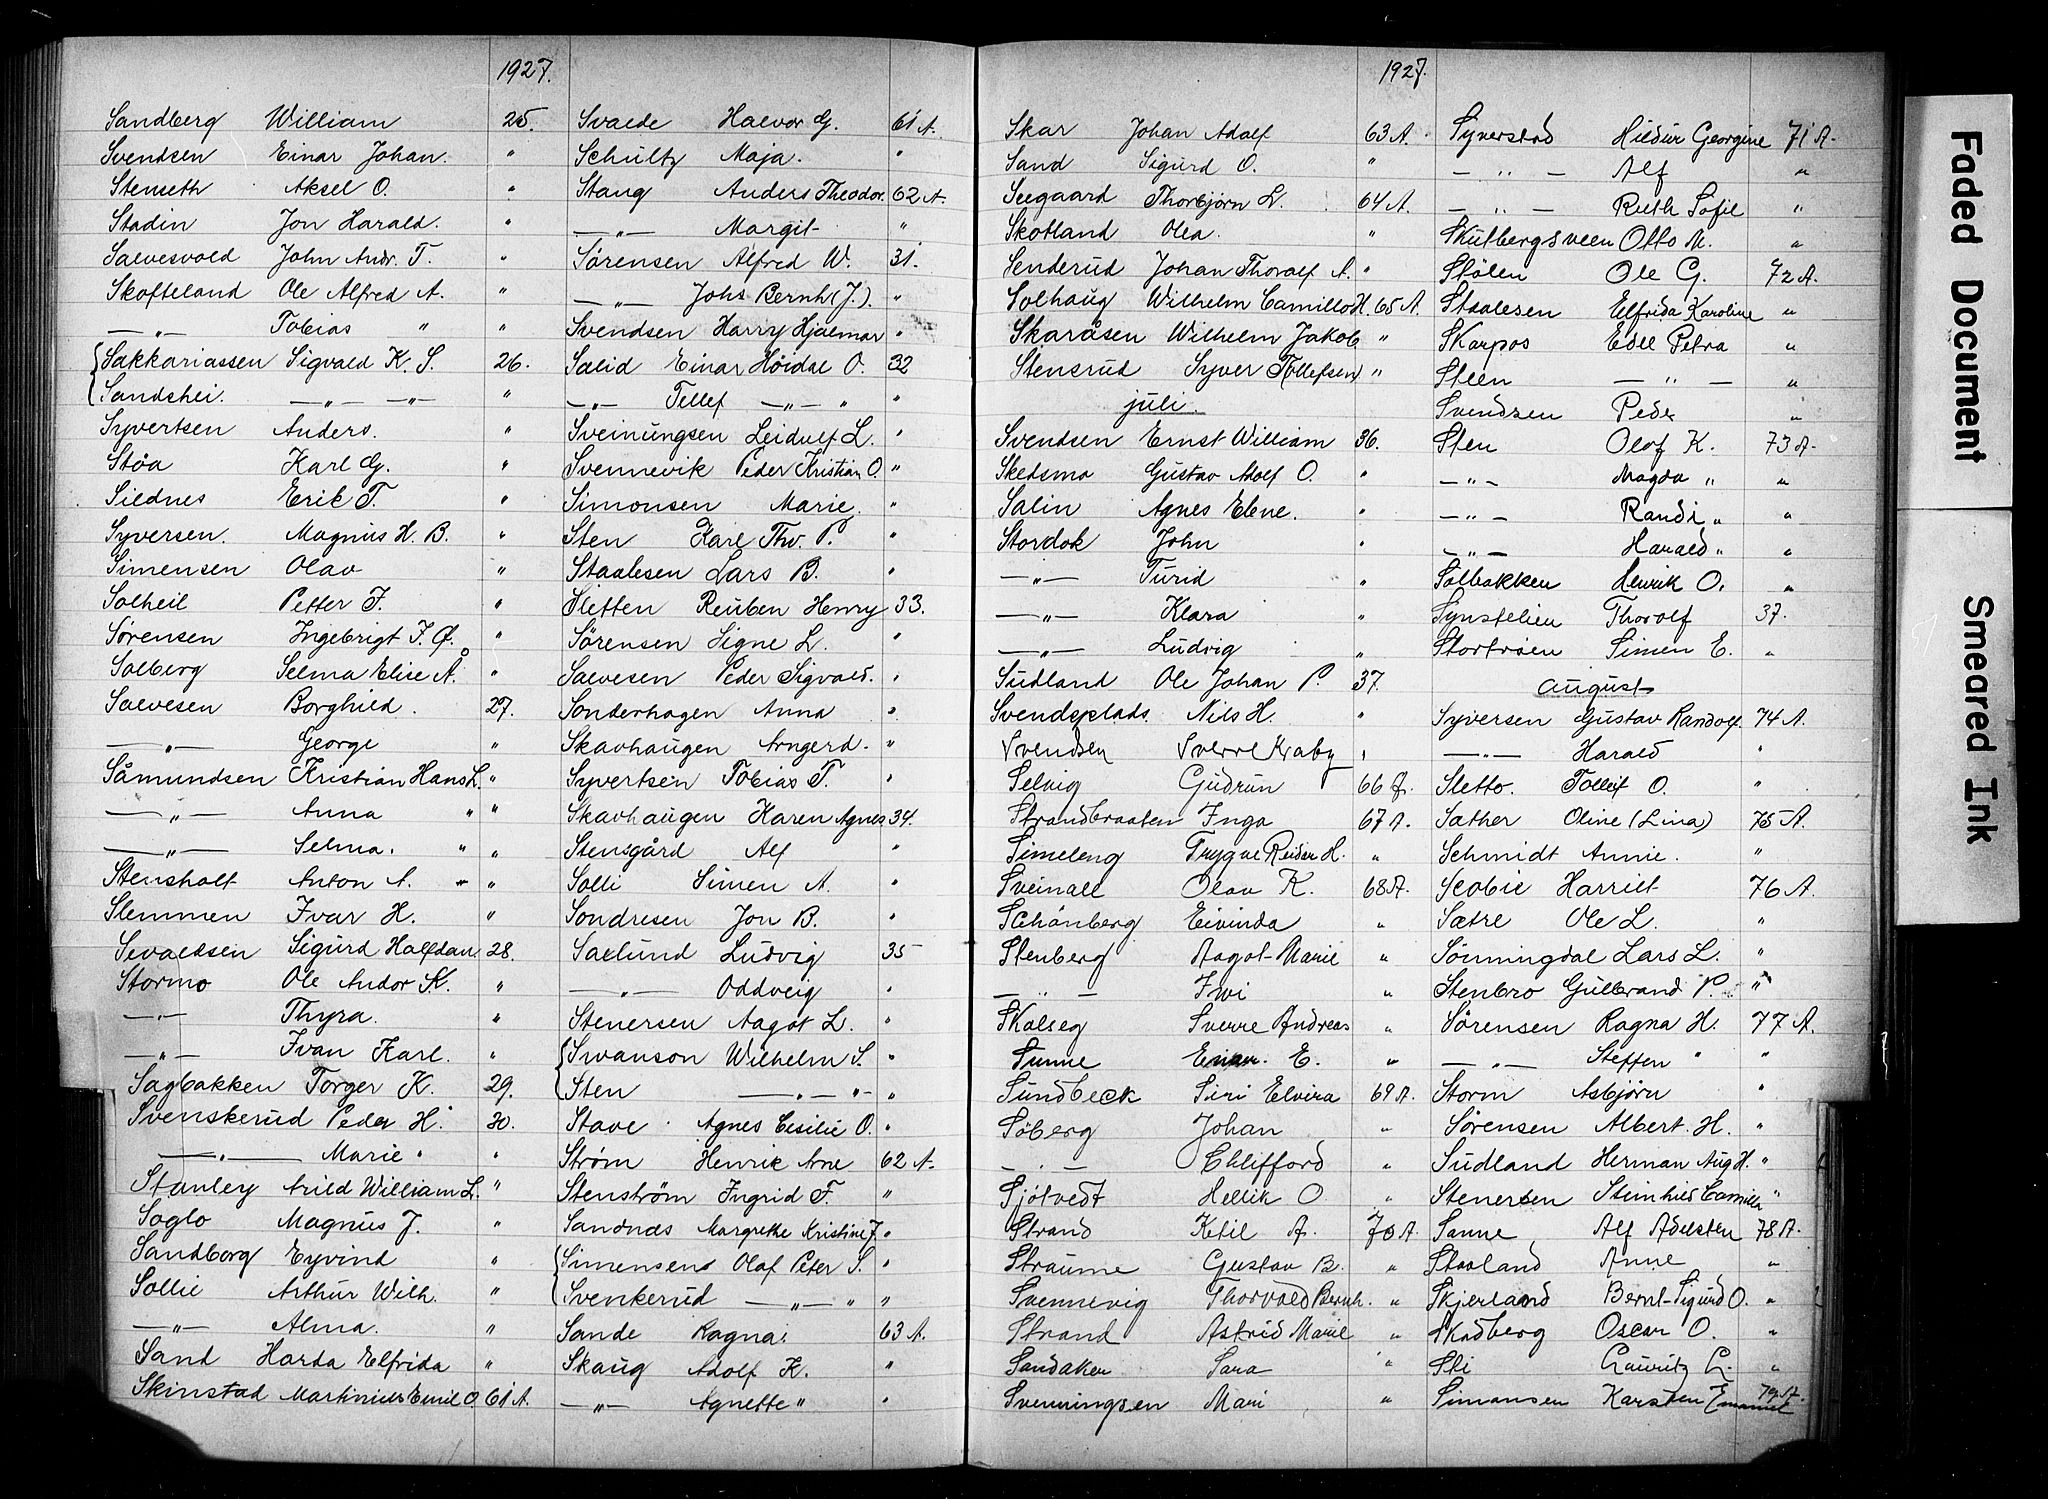 1927.
Sandberg William 25.
Svendsen Einar Johan. "
Stenseth Aksel O. "
Stadin Jon Harald. "
Salvesvold John Andr. T. "
Skofteland Ole Alfred A. "
—"— Tobias " "
Sakkariassen Sigvald K. S. 26.
Sandshei. —"— —"— "
Syvertsen Anders. "
Støa Karl G. "
Sildnes Erik T. "
Syversen. Magnus H. B. "
Simensen Olav "
Solheil Petter J. "
Sørensen Ingebrigt J. Ø. "
Solberg Selma Elise Å. "
Salvesen Borghild. 27.
—"— George "
Såmundsen Kristian Hans L. "
—"— Anna " "
—"— Selma. " "
Stensholt Anton A. " "
Slemmen Ivar H. "
Sivaldsen Sigurd Halfdan 28.
Stormo Ole Andor K. "
—"— Thyra. "
—"— Ivan Karl. "
Sagbakken Torger K. 29.
Svenskerud Peder H. 30.
—"— Marie " "
Stanley Arild William L. "
Soglo Magnus J. "
Sandborg Eyvind "
Sollie Arthur Wilh. "
—"— Alma. "
Sand Harda Elfrida "
Skinstad Martinius Emil O. 61 A.
Svalde Halvor G. 61 A.
Schultz Maja. "
Stang Anders Theodor. 62 A.
—"— Margit "
Sørensen Alfred W. 31.
—"— Johs Bernh (J.). "
Svendsen Harry Hjalmar "
Salid Einar Höidal O. 32
—"— Tellef —"— " "
Sveinungsen Leidulf L. "
Svennevik Peder Kristian O. "
Simonsen Marie. "
Sten Karl Thv. P. "
Staalesen Lars B. "
Sletten Reuben Henry 33.
Sörensen Signe L. "
Salvesen Peder Sigvald. "
Sonderhagen Anna "
Skavhaugen Arngerd. "
Syvertsen Tobias T. "
Skavhaugen Karen Agnes 34.
Stensgård Alf "
Solli Simen A. "
Sondresen Jon B. "
Saxlund Ludvig 35
—"— Oddveig "
Stenersen Aagot L. "
Swanson Wilhelm S. "
Sten —"— "— "
Stave Agnes Cesilie O. "
Strøm Henrik Arne 62 A.
Stenström Ingrid F. "
Sandnäs Margrethe Kristine J. "
Simensen Olaf Peter S. "
Svenkerud —"— " "
Sande Ragna. 63 A.
Skaug Adolf K. "
—"— Agnette " "
1927.
Skar Johan Adolf 63 A.
Sand Sigurd O. "
Seegaard Thorbjørn L. 64 A.
Skotland Olea. "
Senderud Johan Thoralf A. "
Solhaug Wilhelm Camillo H. 65 A.
Skaråsen Wilhelm Jakob "
Stensrud Syver Tollefsen "
juli.
Svendsen Ernst William 36.
Skedsmo Gustav Adolf O. "
Salin Agnes Elene. "
Stordok John "
—"— Turid "
—"— Klara "
—"— Ludvig "
Sudland Ole Johan P. 37.
Svendsplads. Nils H. "
Svendsen Sverre Kraby "
Selvig Gudrun 66 A.
Strandbraaten Inga 67 A.
Simeleng Trygve Reidar H. "
Sveinall Olav K. 68 A.
Schönberg Eivinda "
Stenberg Aagot Marie "
—"— Ivi "
Skolseg Sverre Andreas "
Sunne Einar. E. "
Sundbeck Siri Elvira 69 A.
Söberg Johan "
—"— Chlifford "
Sjötvedt Hellik O "
Strand Ketil A. 70 A.
Straume Gustav B. "
Svennevig Thorvald Bernh. "
Strand Astrid Marie "
Sandaker Sara "
Svenningsen Mari "
Syverstad Hildur Georgine 71 A.
—"— Alf "
—"— Ruth Sofie "
Skulbergsveen Otto M. "
Stölen Ole G. 72 A.
Staalesen Elfrida Karoline "
Skarpos Edle Petra "
Steen —"— "
Svendsen Peder "
Sten Olaf K. 73 A.
—"— Magda " "
—"— Randi " "
—"— Harald " "
Solbakken Henrik O. "
Synstelien Thorolf 37.
Stortröen Simen E. "
august
Syversen Gustav Randolf 74 A.
—"— Harald "
Sletto. Tollef O. "
Sæther Oline (Lina) 75 A.
Schmidt Annie. "
Scobie Harriet 76 A.
Sætre Ole L. "
Sönningdal Lars L. "
Stenbro Gulbrand P. "
Sørensen Ragna H. 77 A.
—"— Steffen " "
Storm Asbjörn "
Sørensen Albert. H. "
Sudland Herman Aug H. "
Stenersen Steinhild Camilla "
Sanne Alf Adelsten 78 A.
Stavland Anne "
Skjerland Bernt Sigurd O. "
Skadberg Oscar O. "
Sti Lauritz L. "
Simonsen Karsten Emanuel 79 A.
Faded Document
Smeared Ink